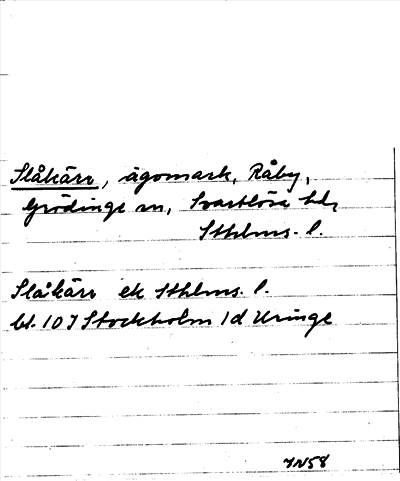 Slåkärr, ägomark, Råby,
Grödinge sn, Svartlösa hd,
Sthlms. l.
Slåkärr ek Sthlms. l.
bl. 10 I Stockholm 1d Uringe
IN58